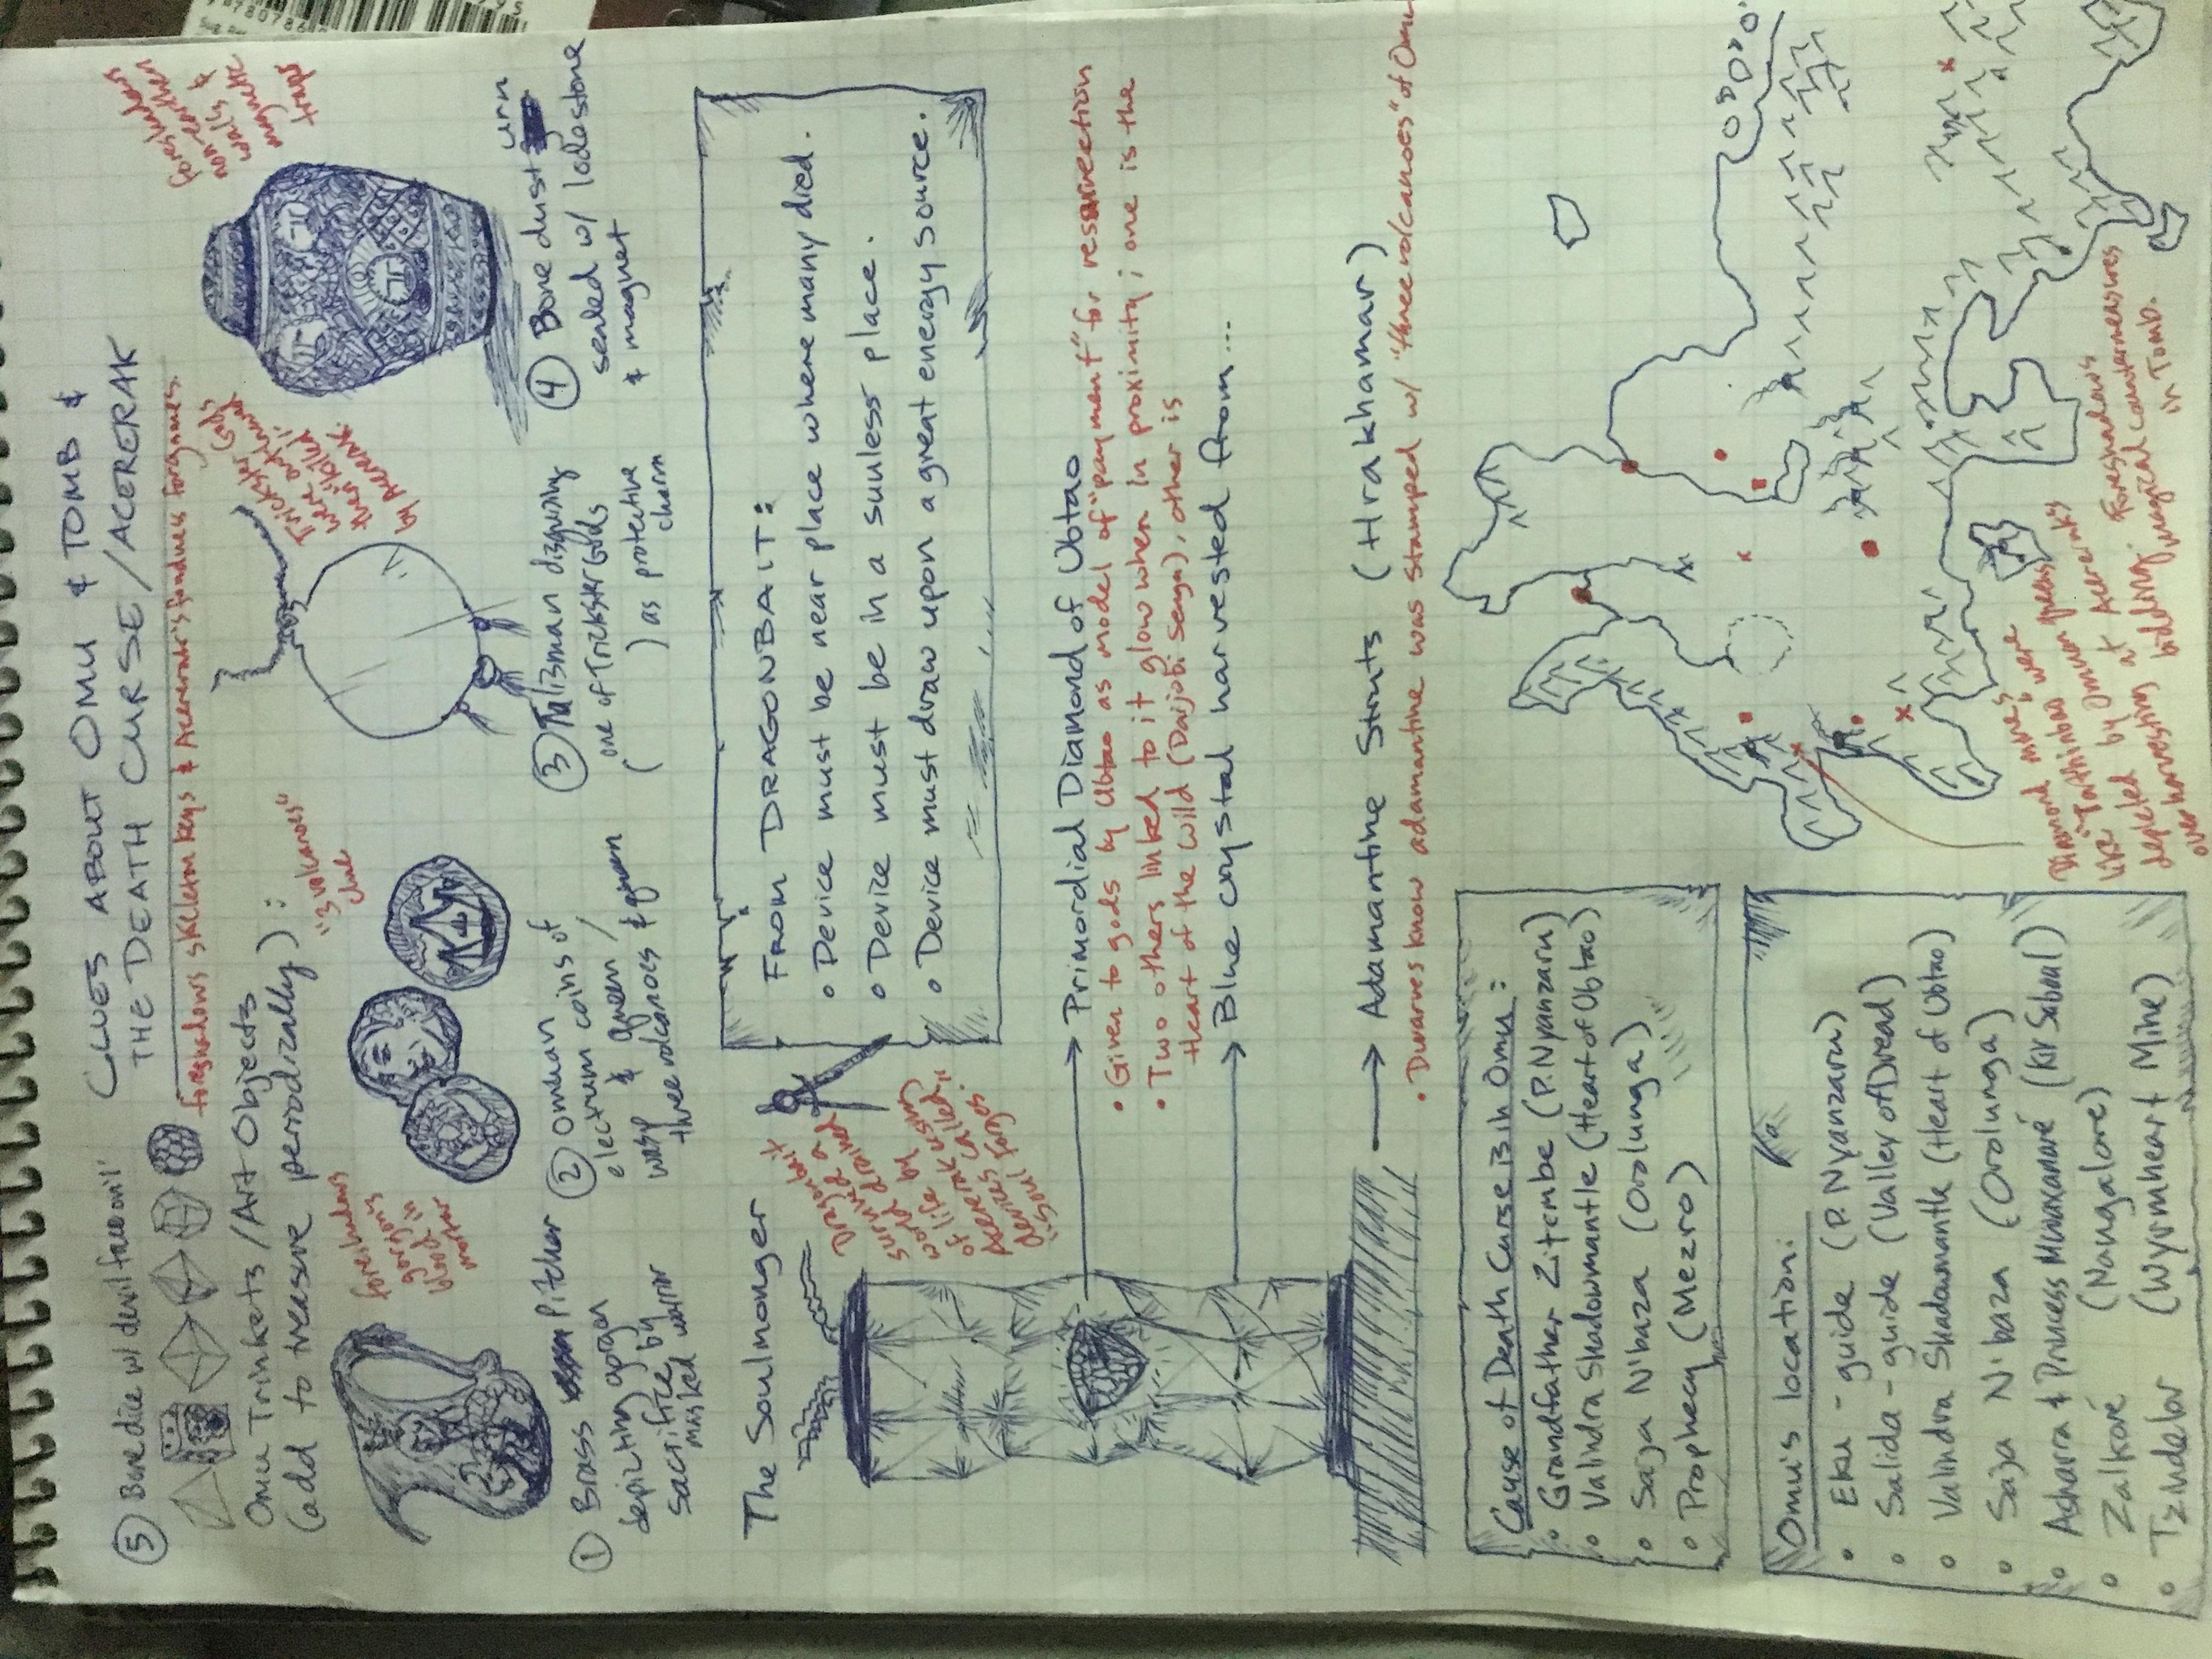 CLUES ABOUT OMU & TOMB &
THE DEATH CURSE/ACERERAK
⑤ Bone dice w/ devil face on "1"
foreshadows skeleton keys & Acererak's fondness for gnomes.
Omu Trinkets/Art Objects
(add to treasure periodically):
foreshadows
gorgon's
blood in
mortar
"3 volcanoes"
clue
Trickster Gods
were outlawed
then killed
by Acererak.
foreshadows
earthen
walls &
magnetic
traps
① Brass Pitcher
depicting gorgon
sacrifice by
masked warrior
② Omuan
electrum coins of
wasp & queen /
three volcanoes &
③ Talisman disguising
one of Trickster Gods
( ) as protective
charm
④ Bone dust urn
sealed w/ lodestone
& magnet
The Soulmonger
Dragonbait
survived a
world drained
of life by using
Acererak called
devices
"soul forges"
FROM DRAGONBAIT:
• Device must be near place where many died.
• Device must be in a sunless place.
• Device must draw upon a great energy source.
→ Primordial Diamond of Ubtao
• Given to gods by Ubtao as model of "payment" for resurrection
• Two others linked to it glow when in proximity; one is the
Heart of the Wild (Daijobi Senga), other is
→ Blue crystal harvested from...
→ Adamantine Struts (Hrakhamar)
• Dwarves know adamantine was stamped w/ "three volcanoes" of Omu
Cause of Death Curse is in Omu:
• Grandfather Zitembe (P. Nyanzaru)
• Valindra Shadowmantle (Heart of Ubtao)
• Saja N'baza (Orolunga)
• Prophecy (Mezro)
Omu's location:
• Eku - guide (P. Nyanzaru)
• Salida - guide (Valley of Dread)
• Valindra Shadowmantle (Heart of Ubtao)
• Saja N'baza (Orolunga)
• Asharra & Princess Mwaxanaré (Kir Sabal)
• Zalkoré (Nangalore)
• Tzindelor (Wyrmheart Mine)
Diamond mines
were
depleted by Omuan
at Acererak's
bidding.
overharvesting
Foreshadows
magical countermeasures
in Tomb.